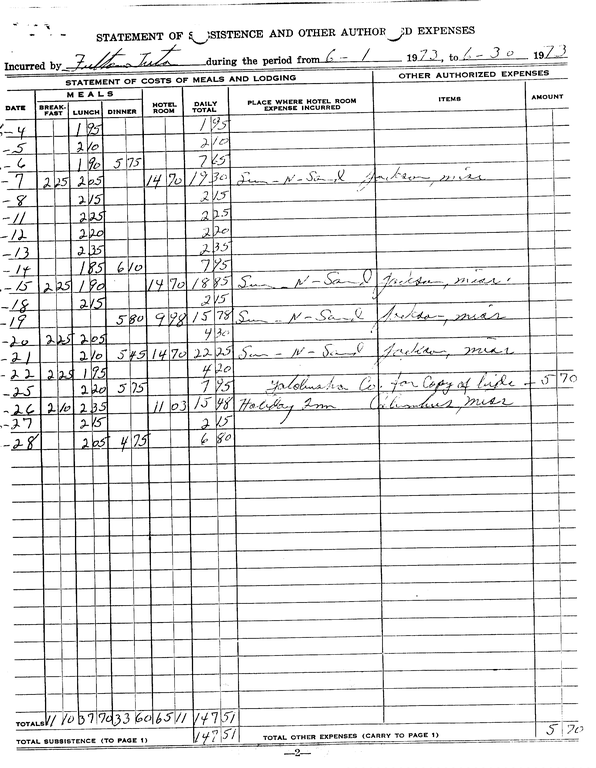 STATEMENT OF SUBSISTENCE AND OTHER AUTHORIZED EXPENSES
Incurred by Fulton Tutor during the period from 6-1 1973, to 6-30 1973
STATEMENT OF COSTS OF MEALS AND LODGING OTHER AUTHORIZED EXPENSES
MEALS
DATE BREAK-FAST LUNCH DINNER HOTEL ROOM DAILY TOTAL PLACE WHERE HOTEL ROOM EXPENSE INCURRED ITEMS AMOUNT
-4 1 95 1 95
-5 2 10 2 10
-6 1 90 5 75 7 65
-7 2 25 2 05 14 70 19 30 Sun-N-Sand Jackson, miss
-8 2 15 2 15
-11 2 25 2 25
-12 2 20 2 20
-13 2 35 2 35
-14 1 85 6 10 7 95
-15 2 25 1 90 14 70 18 85 Sun-N-Sand Jackson, miss.
-18 2 15 2 15
-19 5 80 9 98 15 78 Sun-N-Sand Jackson, miss
-20 2 25 2 05 4 30
-21 2 10 5 45 14 70 22 25 Sun-N-Sand Jackson, miss
-22 2 25 1 95 4 20
-25 2 20 5 75 7 95 Co. for Copy of - 5 70
-26 2 10 2 35 11 03 15 48 Holiday Inn Columbus, miss
-27 2 15 2 15
-28 2 05 4 75 6 80
TOTALS 11 10 37 70 33 60 65 11 147 51
TOTAL SUBSISTENCE (TO PAGE 1) 147 51 TOTAL OTHER EXPENSES (CARRY TO PAGE 1) 5 70
—2—